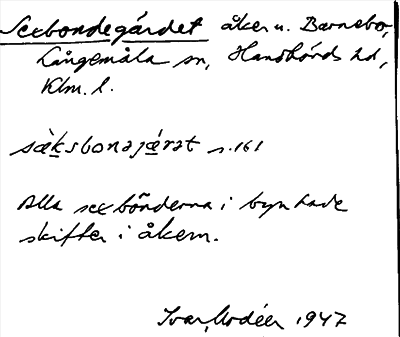 Sexbondegärdet åker u. Barnebo,
Långemåla sn, Handbörds hd,
Klm. l.
sæ̀ksbonəjæ̀rət s. 161
Alla sexbönderna i byn hade
skiften i åkern.
Ivar Modéer 1947